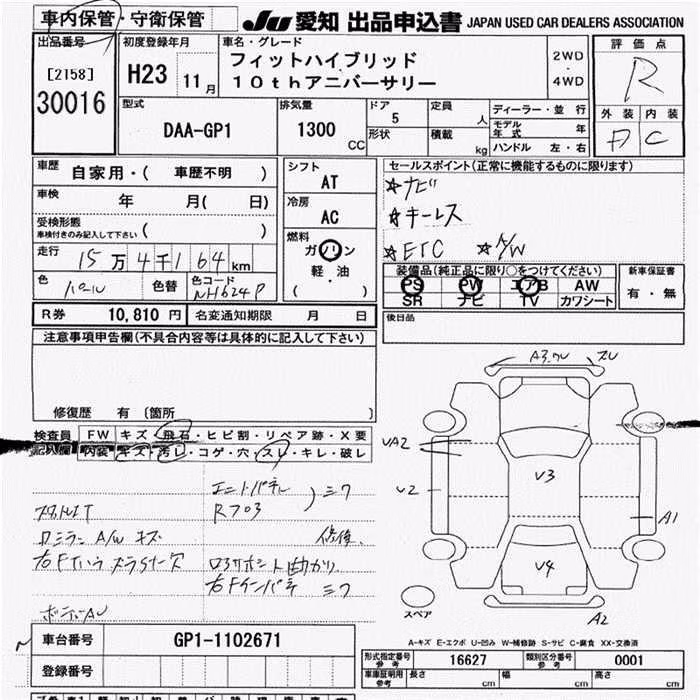 車内保管・守衛保管
JU 愛知 出品申込書 JAPAN USED CAR DEALERS ASSOCIATION
出品番号
[2158]
30016
初度登録年月
H23 11月
車名・グレード
フィットハイブリッド
10thアニバーサリー
2WD
・
4WD
評価点
R
外装 内装
A C
型式
DAA-GP1
排気量
1300 CC
ドア
5
形状
定員
人
積載
kg
ディーラー・並行
モデル年式 年
ハンドル 左・右
車歴
自家用・( 車歴不明 )
車検
年 月( 日)
受検形態
車検付きのみ記入して下さい ( )
走行
15万4千164km
色
パール
色替
色コード
NH624P
シフト
AT
冷房
AC
燃料
ガソリン
軽・油
( )
セールスポイント(正常に機能するものに限ります)
☆ナビ
☆キーレス
☆ETC ☆A/W
装備品(純正品に限り○をつけてください)
PS PW エアB AW
SR ナビ TV カワシート
新車保証書
有・無
R券 10,810円 名変通知期限 月 日
後日品
注意事項申告欄(不具合内容等は具体的に記入して下さい)
修復歴 有 〔箇所 〕
検査員記入欄
FW キズ・飛石・ヒビ割・リペア跡・X要
内装 キズ・汚レ・コゲ・穴・スレ・キレ・破レ
A3
UA2
U2
U3
U4
A1
A2
スペア
A-キズ E-エクボ U-凹み W-補修跡 S-サビ C-腐食 XX-交換済
車台番号 GP1-1102671
登録番号
形式指定番号 参考 16627 類別区分番号 参考 0001
車庫証明用 参考 長さ cm 幅 cm 高さ cm